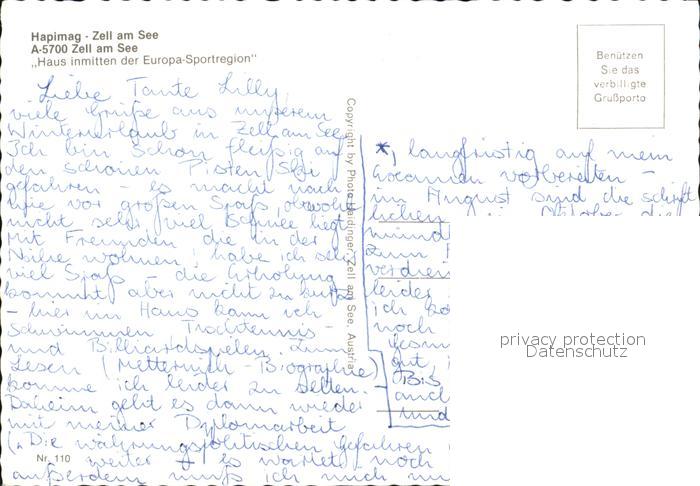 Hapimag - Zell am See
A-5700 Zell am See
„Haus inmitten der Europa-Sportregion"
Benützen
Sie das
verbilligte
Grußporto
Liebe Tante Lilly,
viele Grüße aus unserem
Winterurlaub in Zell am See.
Ich bin schon fleißig auf
den schönen Pisten Ski
gefahren - es macht nach
wie vor großen Spaß, obwohl
nicht sehr viel Schnee liegt.
Mit Freunden die in der
Nähe wohnen, habe ich sehr
viel Spaß - die Erholung
kommt aber nicht zu kurz
- hier im Haus kann ich
Schwimmen, Tischtennis -
und Billiardspielen. Zum
Lesen (Metternich - Biographie)
komme ich leider zu selten.
Daheim geht es dann wieder
mit meiner Diplomarbeit
(„Die währungspolitischen Gefahren
weiter + es wartet noch
außerdem muß ich mich
Nr. 110
Copyright by Photo Haidinger, Zell am See, Austria
*, langfristig auf mein
Examen vorbereiten -
im August sind die schrift
lichen
münd
zum
verdien
leider
ich
noch
gut
Bis
auch
und
privacy protection
Datenschutz